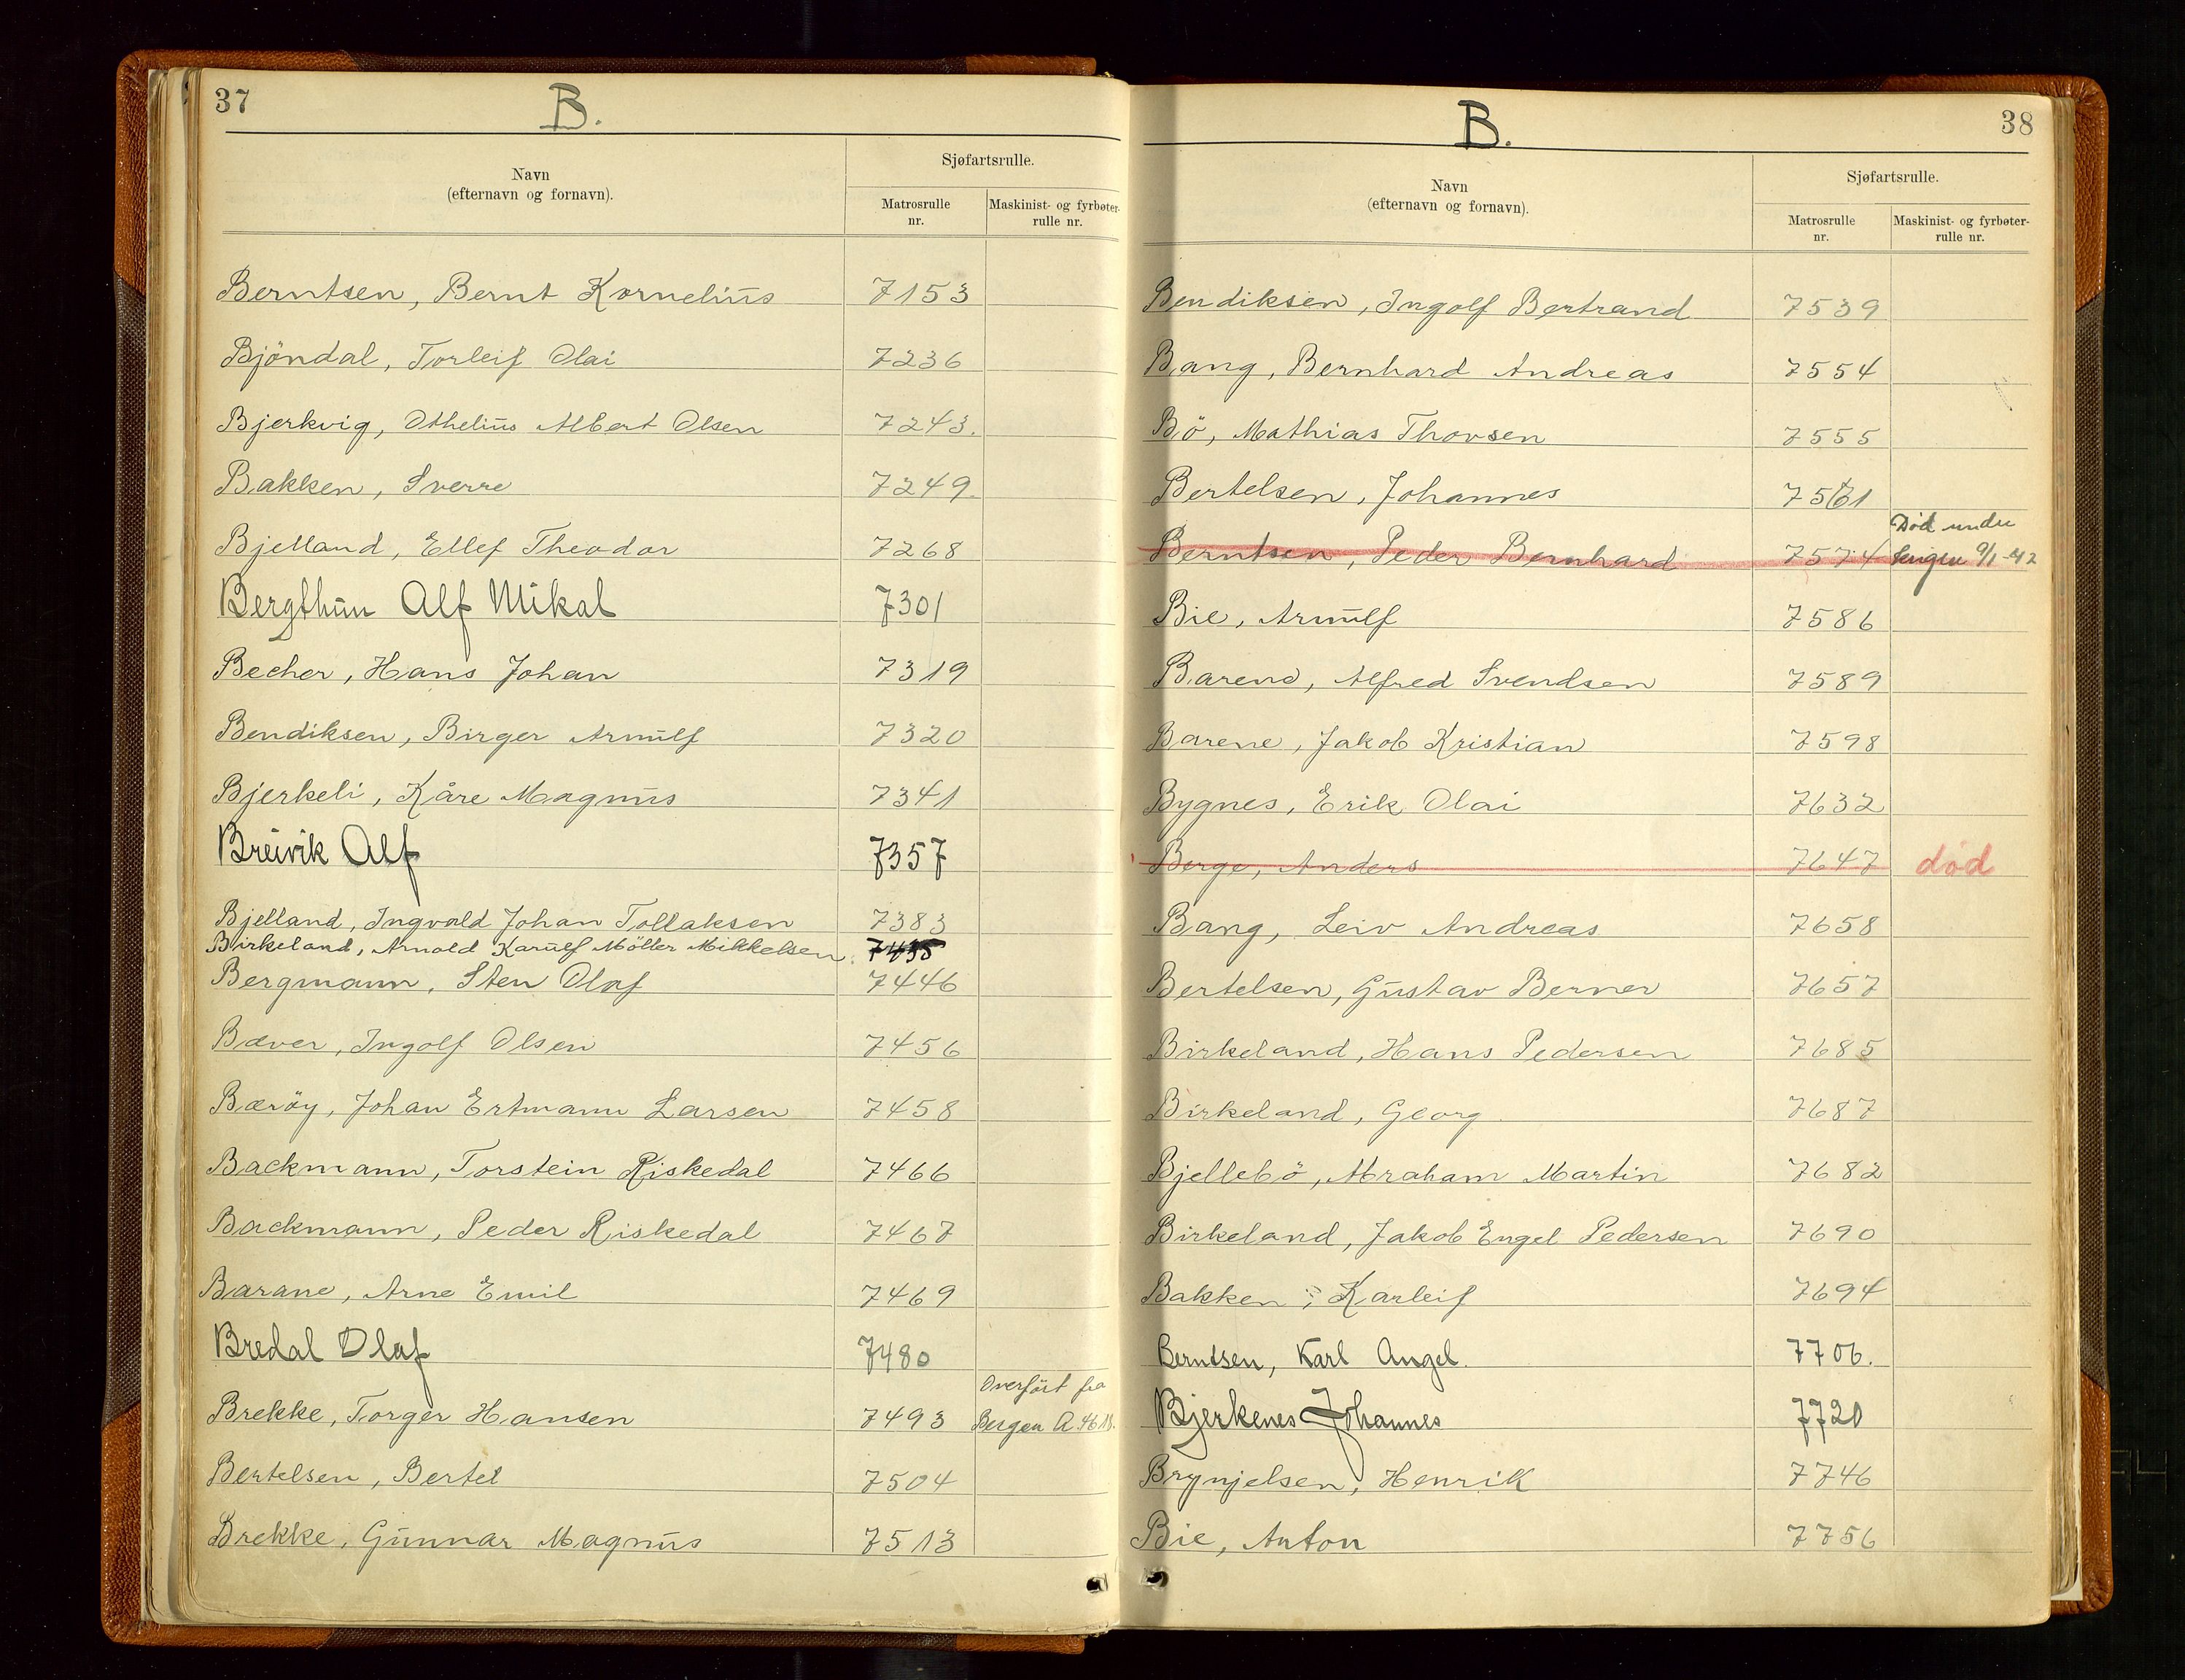 37
B.
Navn
(efternavn og fornavn).
Sjøfartsrulle.
Matrosrulle
nr.
Maskinist- og fyrbøter-
rulle nr.
Berntsen, Bernt Kornelius 7153
Bjöndal, Torleif Olai 7236
Bjerkvig, Othelius Albert Olsen 7243.
Bakken, Sverre 7249.
Bjelland, Ellef Theodor 7268
Bergthun Alf Mikal 7301
Becher, Hans Johan 7319
Bendiksen, Birger Arnulf 7320
Bjerkeli, Kåre Magnus 7341
Breivik Alf 7357
Bjelland, Ingvald Johan Tollaksen 7383
Birkeland, Arnold Karulf Möller Mikkelsen. 7435
Bergmann, Sten Olaf 7446
Bæver, Ingolf Olsen 7456
Bæröy, Johan Ertmann Larsen 7458
Backmann, Torstein Riskedal 7466
Backmann, Peder Riskedal 7467
Barane, Arne Emil 7469
Bredal Olaf 7480
Overfört fra
Brekke, Torger Hansen 7493 Bergen A.
Bertelsen, Bertel 7504
Brekke, Gunnar Magnus 7513
38
B.
Navn
(efternavn og fornavn).
Sjøfartsrulle.
Matrosrulle
nr.
Maskinist- og fyrbøter-
rulle nr.
Bendiksen, Ingolf Bertrand 7539
Bang, Bernhard Andreas 7554
Bö, Mathias Thorsen 7555
Bertelsen, Johannes 7561
Død under
Berntsen, Peder Bernhard 7574 9/1-42
Bie, Arnulf 7586
Barene, Alfred Svendsen 7589
Barene, Jakob Kristian 7598
Bygnes, Erik Olai 7632
Berge, Anders 7647 død
Bang, Leiv Andreas 7658
Bertelsen, Gustav Berner 7657
Birkeland, Hans Pedersen 7685
Birkeland, Georg 7687
Bjellebö, Abraham Martin 7682
Birkeland, Jakob Engel Pedersen 7690
Bakken, Karleif 7694
Berntsen, Karl Angel. 7706.
Bjerkenes Johannes 7720
Brynjelsen, Henrik 7746
Bie, Anton 7756